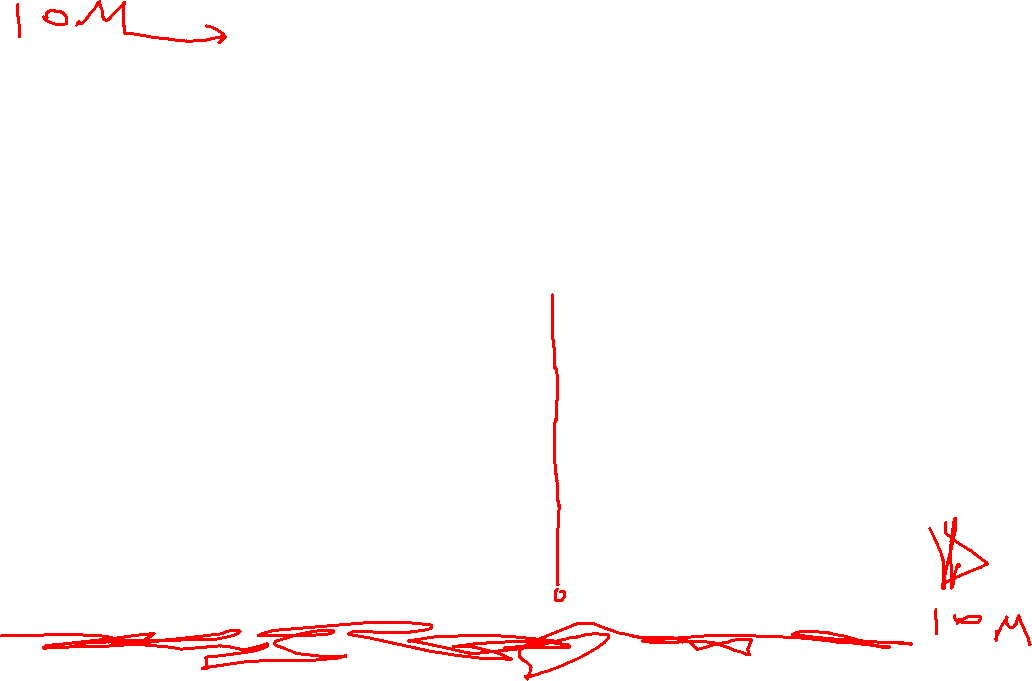 10M
10M